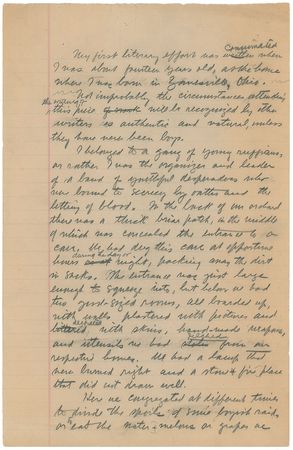 consummated
My first literary effort was written when
I was about fourteen years old, at the home
where I was born in Zanesville, Ohio.
Not improbably the circumstances attending
the writing of
this piece will be recognized by other
writers as authentic and natural, unless
they have never been boys.
I belonged to a gang of young ruffians,
or rather, I was the organizer and leader
of a band of youthful desperadoes who
were bound to secrecy by oaths and the
letting of blood. In the back of our orchard
there was a thick briar patch, in the middle
of which was concealed the entrance to a
cave. We had dug this cave at opportune
during the day or
hours night, packing away the dirt
in sacks. The entrance was just large
enough to squeeze into, but below we had
two good-sized rooms, all boarded up,
with walls plastered with pictures and
decorated
with skins, hand-made weapons,
and utensils we had
swiped
stolen from our
respective homes. We had a lamp that
never burned right and a stone fire place
that did not draw well.
Here we congregated at different times
to divide the spoils of some boyish raid,
or eat the water-melons or grapes we